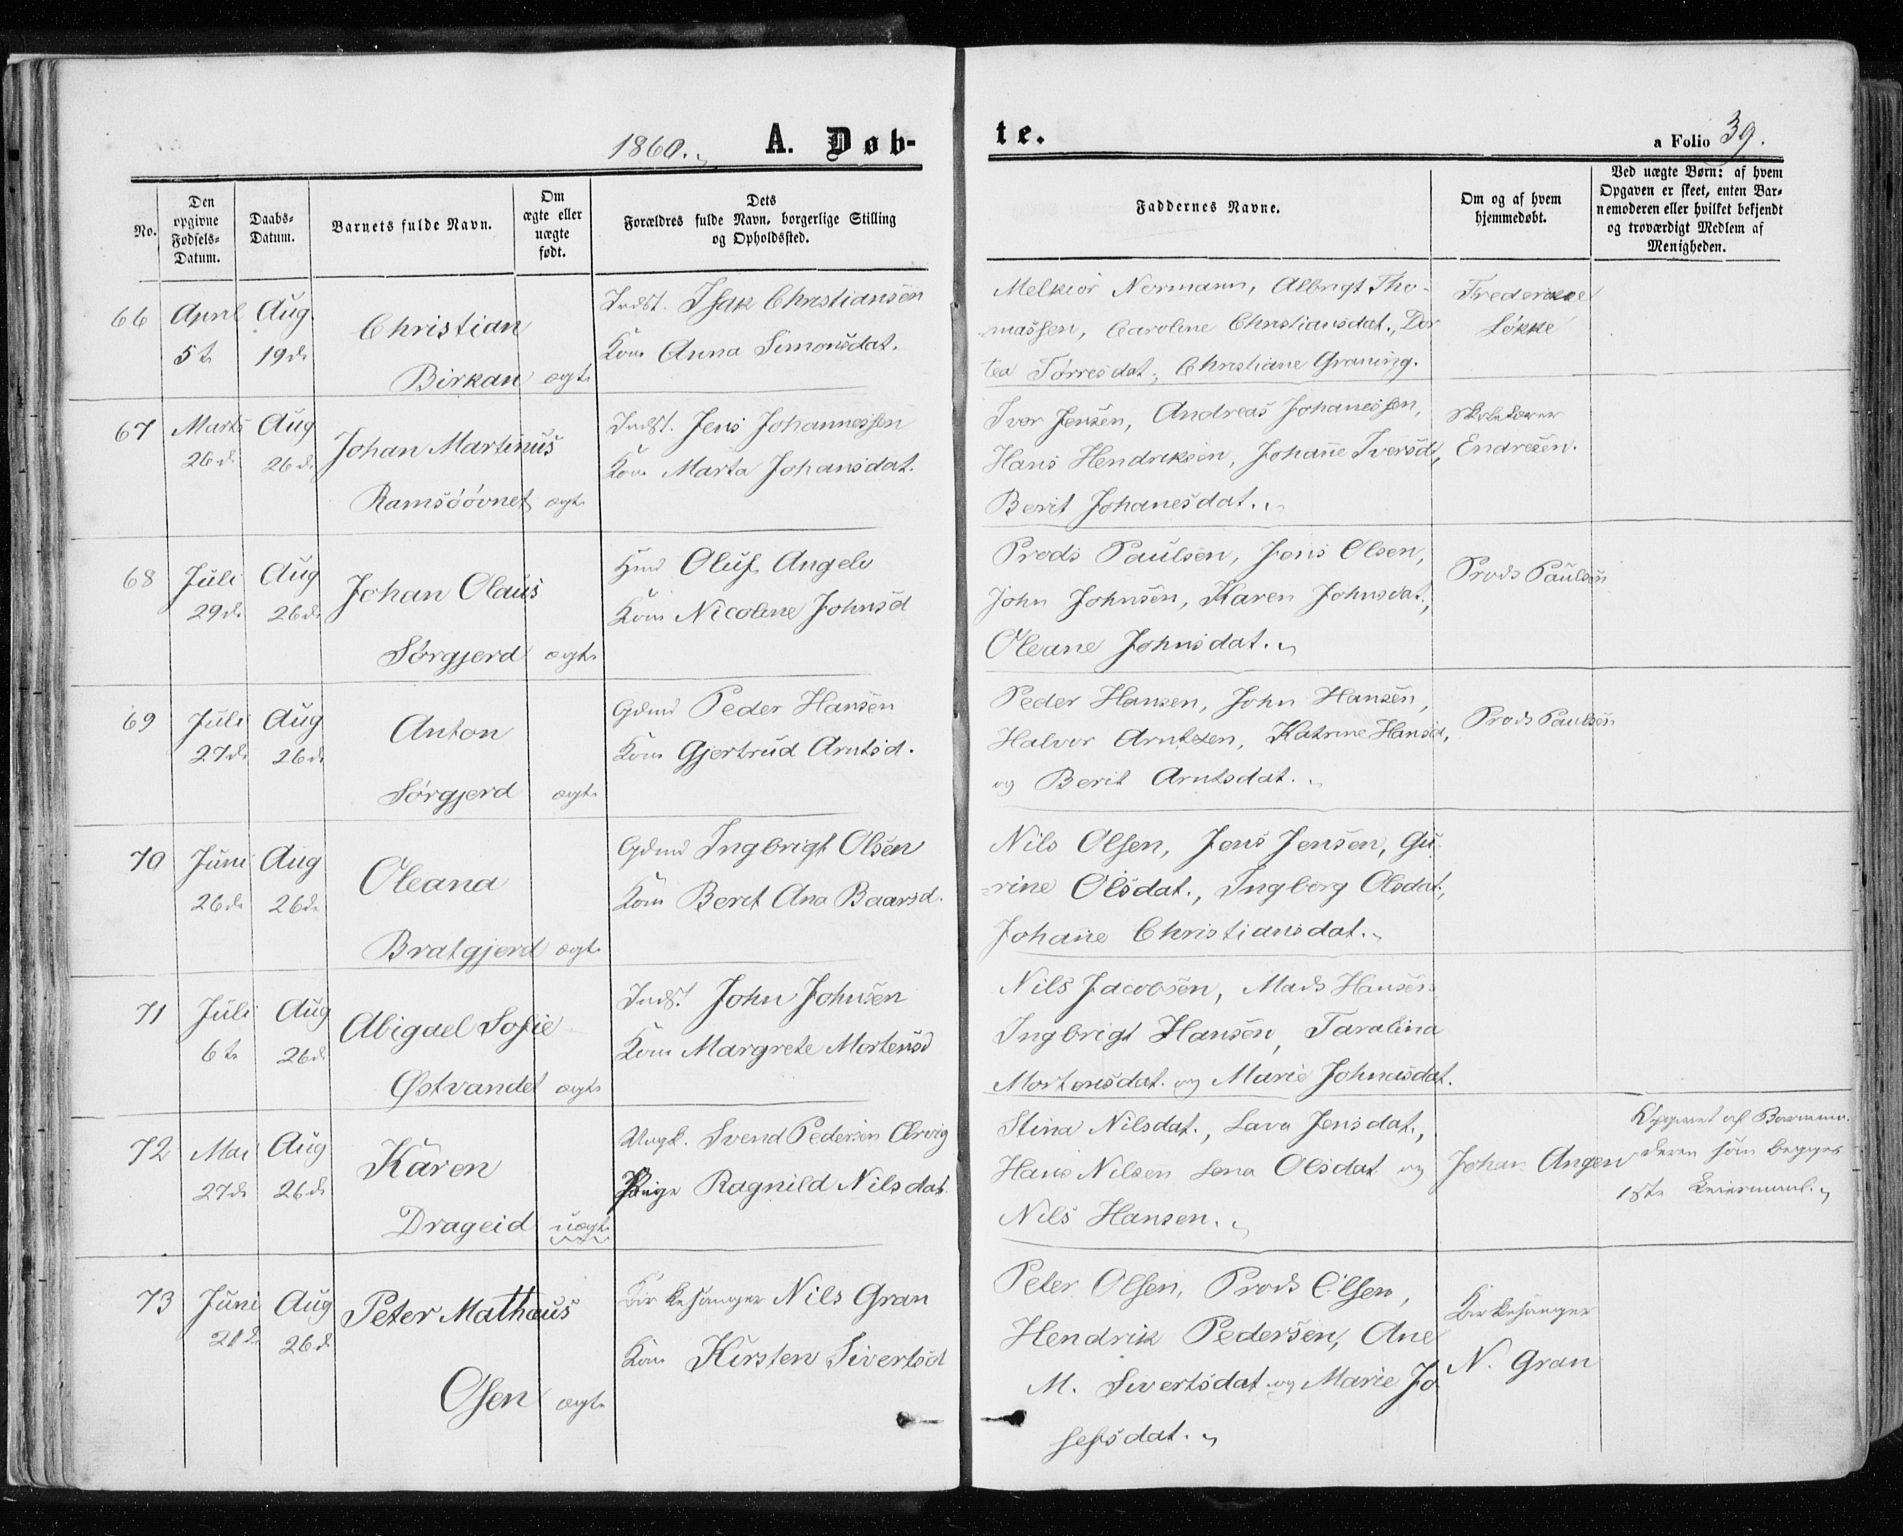 1860. A. Døb-
te.
a Folio 39.
No.
Den opgivne Fødsels-Datum.
Daabs-Datum.
Barnets fulde Navn.
Om ægte eller uægte født.
Dets Forældres fulde Navn, borgerlige Stilling og Opholdssted.
Faddernes Navne.
Om og af hvem hjemmedøbt.
Ved uægte Børn: af hvem Opgaven er skeet, enten Barnemoderen eller hvilket bekjendt og troværdigt Medlem af Menigheden.
66 April Aug. Indst. Isak Christiansen
5te 19de Christian Kone Anna Simonsdat.
Birkan ægte
Melkior Normann, Albrigt Tho-
massen, Caroline Christiansdat., Dor
tea Tørresdat., Christiane Graning.
Frederikke
Løkke
67 Marts Aug Johan Martinus Indst. Jens Johannessen
26de 26de Kone Marta Johansdat.
Ramsøøvnet ægte
Iver Jensen, Andreas Johanessen,
Hans Hendriksen, Johane Iversd,
Berit Johanesdat.
Skolelærer
Endresen.
68 Juli Aug Johan Olaus Hmd Oluf Angel
29de 26de Kone Nicoline Johnsd
Sørgjerd ægte
Prods Paulsen, Jens Olsen,
John Johnsen, Karen Johnsdat,
Oleane Johnsdat.
Prods Paulsen
69 Juli Aug Anton Gdmd Peder Hansen
27de 26de Kone Gjertrud Arntsd.
Sørgjerd ægte
Peder Hansen, John Hansen,
Halvor Arntzen, Katrine Hansd,
og Berit Arntsdat.
Prods Paulsen
70 Juni Aug Oleana Gdmd Ingbrigt Olsen
26de 26de Kone Berit Ana Baarsd.
Bratgjerd ægte
Nils Olsen, Jens Jensen, Gu-
rine Olsdat., Ingborg Olsdat,
Johane Christiansdat.
71 Juli Aug Abigael Sofie Indst John Johnsen
6te 26de Kone Margrete Mortensd
Østvandet ægte
Nils Jacobsen, Mads Hansen
Ingbrigt Hansen, Taralina
Mortensdat. og Marie Johnasdat.
72 Mai Aug Karen Ungk. Svend Pedersen Ervig
27de 26de Pige Ragnild Nilsdat
Drageid uægte
Stina Nilsdat., Lava Jensdat.,
Hans Nilsen Lena Olsdat og
Nils Hansen.
Johan Angen
Opgivet af Barnemo-
deren som begges
1ste Leiermaal.
73 Juni Aug Peter Mathæus Kirkesanger Nils Gran
21de 26de Kone Kirsten Sivertsd
Osen ægte
Peter Olsen, Prods Olsen,
Hendrik Pedersen, Ane
M. Sivertsdat og Marie Jo
sefsdat.
Kirkesanger
N. Gran